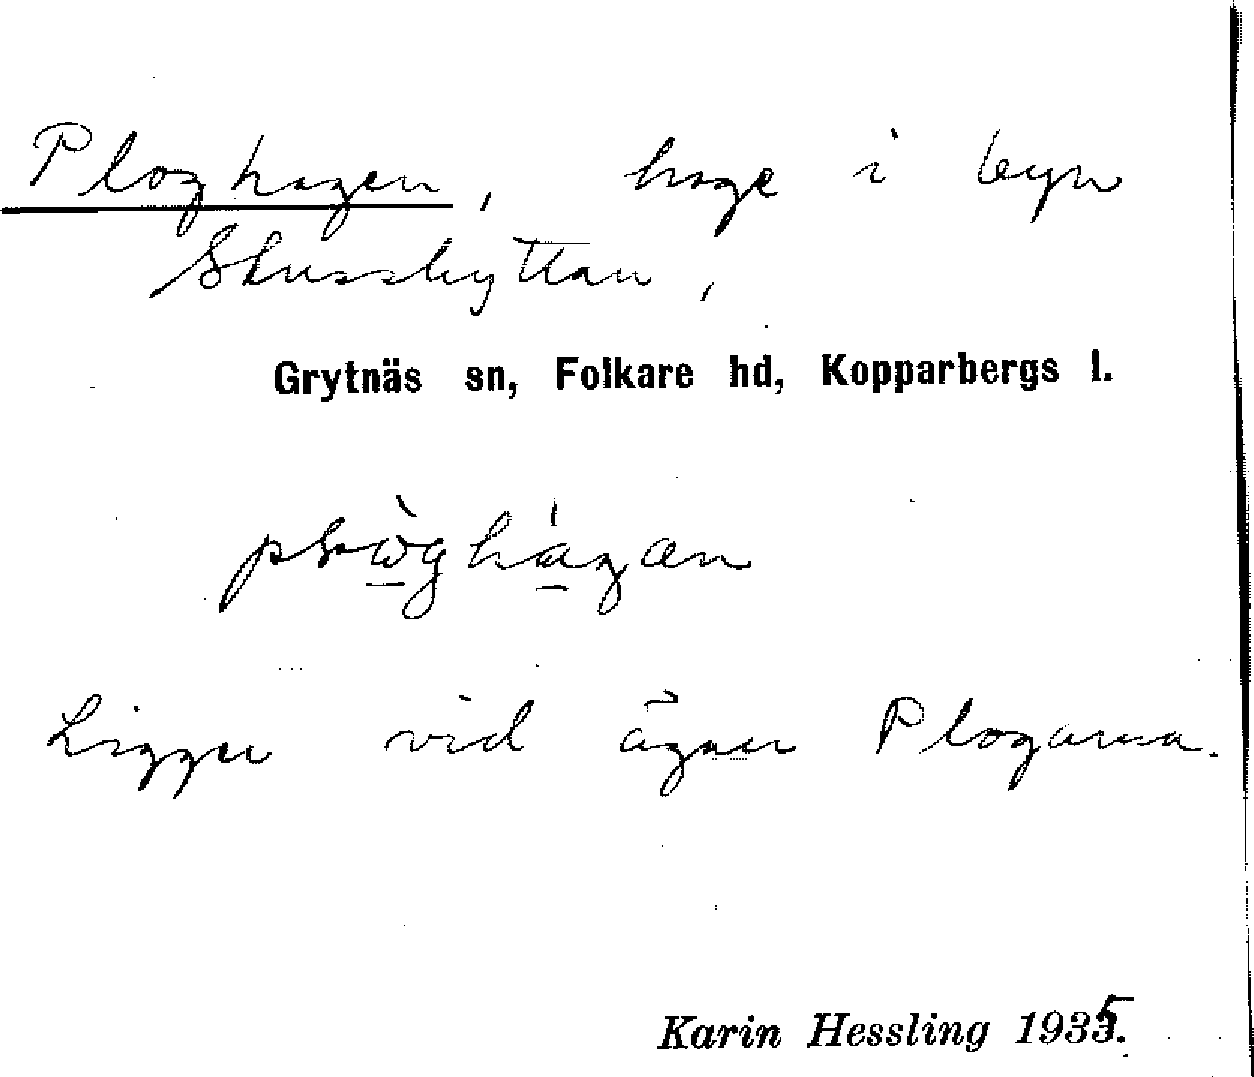 Ploghagen, hage i byn
Skusshyttan,
Grytnäs sn, Folkare hd, Kopparbergs l.
Ligger vid ägan Plogarna.
Karin Hessling 1935.